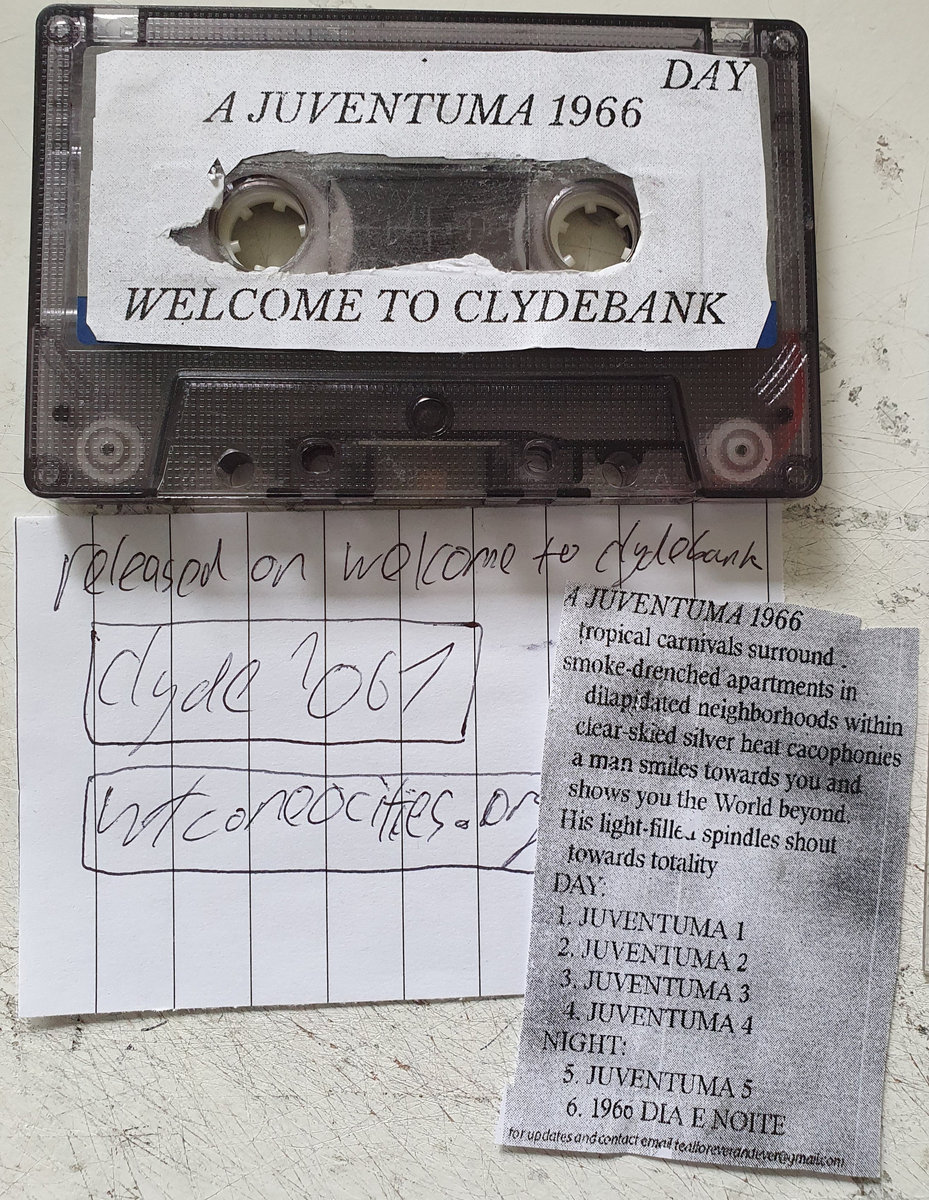 DAY
A JUVENTUMA 1966
WELCOME TO CLYDEBANK
released on welcome to clydebank
clyde 2061
wtconeocities.or
A JUVENTUMA 1966
tropical carnivals surround
smoke-drenched apartments in
dilapidated neighborhoods within
clear-skied silver heat cacophonies
a man smiles towards you and
shows you the World beyond.
His light-filled spindles shout
towards totality
DAY:
1. JUVENTUMA 1
2. JUVENTUMA 2
3. JUVENTUMA 3
4. JUVENTUMA 4
NIGHT:
5. JUVENTUMA 5
6. 1966 DIA E NOITE
for updates and contact email tealforeverandever@gmail.com